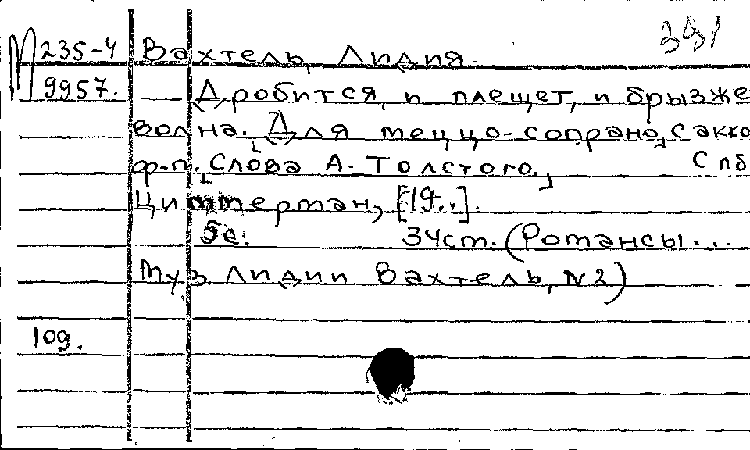 351
М 235-4 Вахтель, Лидия.
9957. Дробится, и плещет, и брызже
волна. Для меццо-сопрано, с акко
ф-п. Слова А. Толстого. Спб
Циммерман, [19..].
5с. 34см. (Романсы...
Муз Лидии Вахтель, №2)
109.